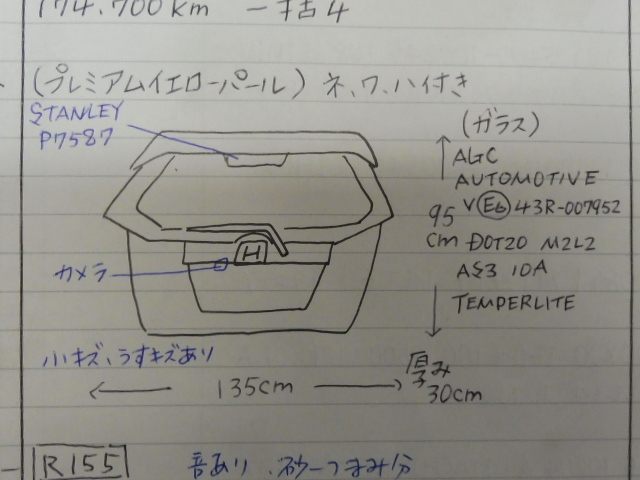 174.700km
(プレミアムイエローパール) ネ、ワ、ハ付き
STANLEY
P7587
(ガラス)
AGC
AUTOMOTIVE
V E6 43R-007952
95
cm
DOT20 M2L2
AS3 10A
TEMPERLITE
H
カメラ
小キズ、うすキズあり
135cm
厚み
30cm
R155
音あり、砂一つまみ分